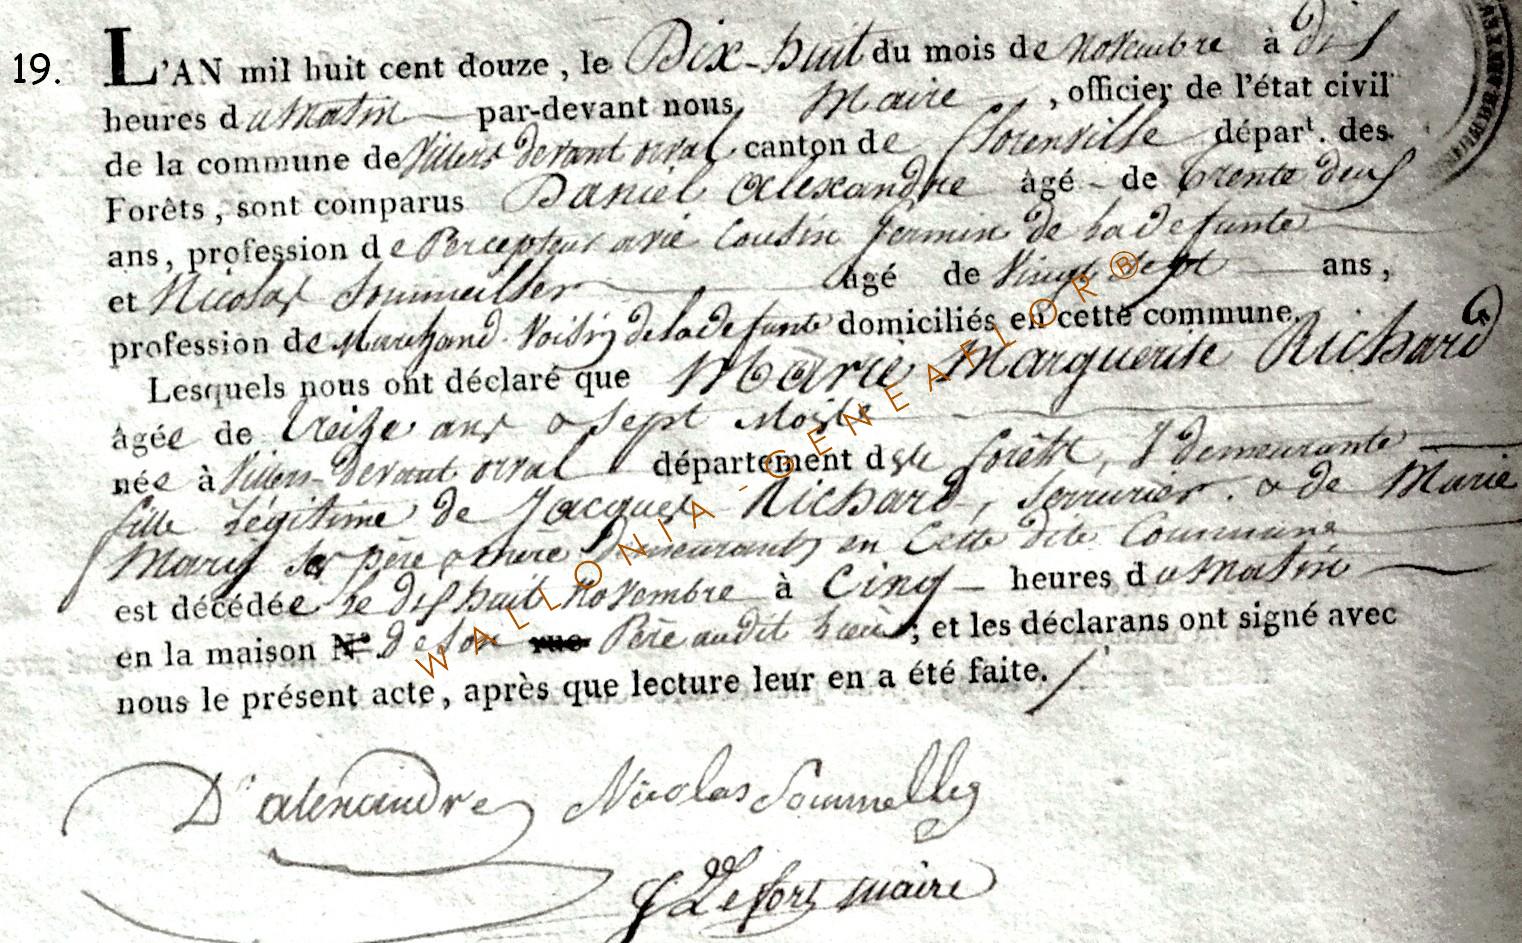 19.
L'AN mil huit cent douze, le Dix-huit du mois de Novembre à dix
heures du Matin par-devant nous, Maire, officier de l'état civil
de la commune de Villers devant orval canton de florenville départ. des
Forêts, sont comparus Daniel Alexandre âgé de trente deux
ans, profession de Percepteur Cousin Germin de La defunte
et Nicolas Sommeiller âgé de Vingt Sept ans,
profession de Marchand Voisin de la defunte domiciliés en cette commune.
Lesquels nous ont déclaré que Marie Marguerite Richard
âgée de treize ans & sept Mois
née à Villers-devant orval département des forêts, Y demeurante
fille Légitime de Jacques Richard, Serrurier. & de Marie
ses père & mère Demeurants en Cette dite Commune
est décédée le dix huit Novembre à Cinq heures du Matin
en la maison N.° De son rue Père audit ; et les déclarans ont signé avec
nous le présent acte, après que lecture leur en a été faite.
D alexandre Nicolas
Lefort maire
WALLONIA-GENEAFLOR®